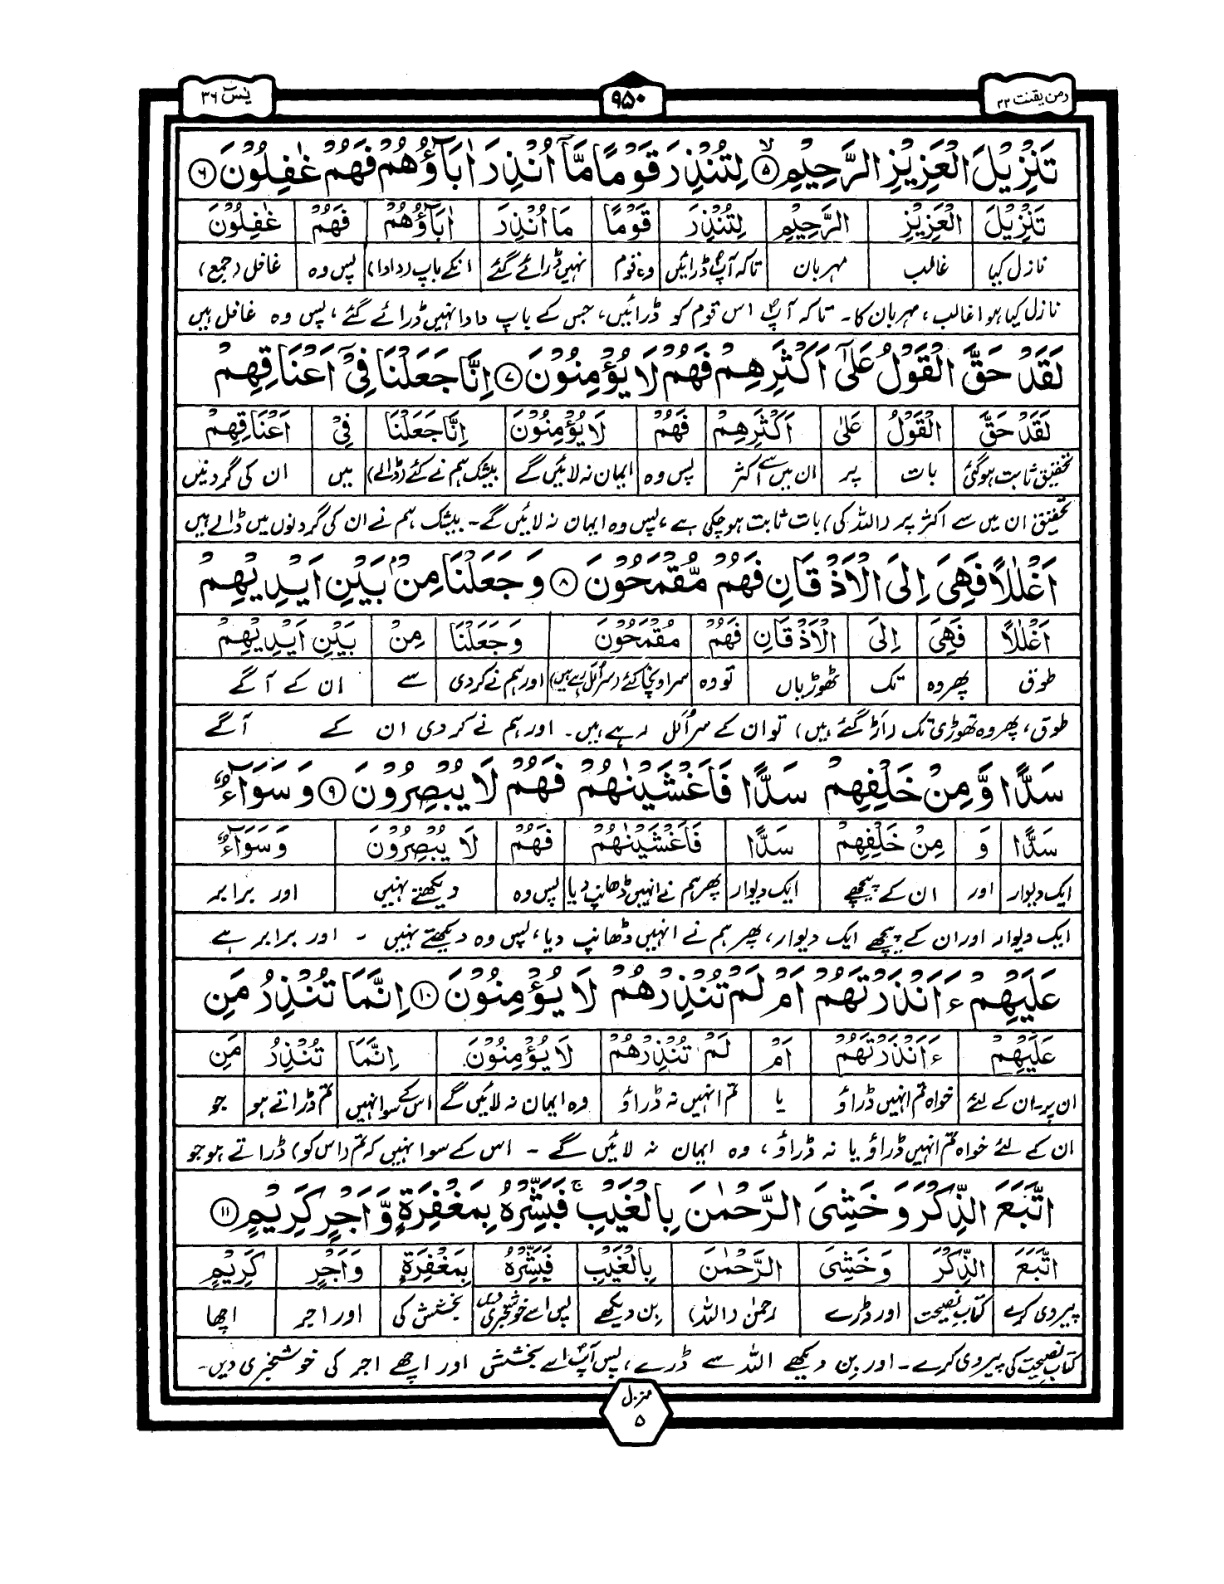 ومن یقنت ۲۲ ۹۵۰ یٰسٓ ۳۶
تَنْزِيْلَ الْعَزِيْزِ الرَّحِيْمِ ۵ لِتُنْذِرَ قَوْمًا مَّآ اُنْذِرَ اٰبَآؤُهُمْ فَهُمْ غٰفِلُوْنَ ۶
تَنْزِيْلَ الْعَزِيْزِ الرَّحِيْمِ لِتُنْذِرَ قَوْمًا مَا اُنْذِرَ اٰبَآؤُهُمْ فَهُمْ غٰفِلُوْنَ
نازل کیا غالب مہربان تاکہ آپؐ ڈرائیں وہ قوم نہیں ڈرائے گئے انکے باپ (دادا) پس وہ غافل (جمع)
نازل کیا ہوا غالب، مہربان کا۔ تاکہ آپؐ اس قوم کو ڈرائیں، جس کے باپ دادا نہیں ڈرائے گئے، پس وہ غافل ہیں
لَقَدْ حَقَّ الْقَوْلُ عَلٰٓى اَكْثَرِهِمْ فَهُمْ لَا يُؤْمِنُوْنَ ۷ اِنَّا جَعَلْنَا فِىْٓ اَعْنَاقِهِمْ
لَقَدْ حَقَّ الْقَوْلُ عَلٰى اَكْثَرِهِمْ فَهُمْ لَا يُؤْمِنُوْنَ اِنَّا جَعَلْنَا فِىْ اَعْنَاقِهِمْ
تحقیق ثابت ہوگئی بات پر ان میں سے اکثر پس وہ ایمان نہ لائیں گے بیشک ہم نے کئے (ڈالے) میں ان کی گردنیں
تحقیق ان میں سے اکثر پر (اللہ کی) بات ثابت ہوچکی ہے، پس وہ ایمان نہ لائیں گے۔ بیشک ہم نے ان کی گردنوں میں ڈالے ہیں
اَغْلٰلًا فَهِىَ اِلَى الْاَذْقَانِ فَهُمْ مُّقْمَحُوْنَ ۸ وَجَعَلْنَا مِنْۢ بَيْنِ اَيْدِيْهِمْ
اَغْلٰلًا فَهِىَ اِلَى الْاَذْقَانِ فَهُمْ مُقْمَحُوْنَ وَجَعَلْنَا مِنْ بَيْنِ اَيْدِيْهِمْ
طوق پھر وہ تک ٹھوڑیاں تو وہ سراونچا کئے (سر اُلل رہے ہیں) اور ہم نے کردی سے ان کے آگے
طوق، پھر وہ ٹھوڑی تک (اَڑ گئے ہیں) تو ان کے سر اُلل رہے ہیں۔ اور ہم نے کر دی ان کے آگے
سَدًّا وَّمِنْ خَلْفِهِمْ سَدًّا فَاَغْشَيْنٰهُمْ فَهُمْ لَا يُبْصِرُوْنَ ۹ وَسَوَآءٌ
سَدًّا وَ مِنْ خَلْفِهِمْ سَدًّا فَاَغْشَيْنٰهُمْ فَهُمْ لَا يُبْصِرُوْنَ وَسَوَآءٌ
ایک دیوار اور ان کے پیچھے ایک دیوار پھر ہم نے انہیں ڈھانپ دیا پس وہ دیکھتے نہیں اور برابر
ایک دیوار اور ان کے پیچھے ایک دیوار، پھر ہم نے انہیں ڈھانپ دیا، پس وہ دیکھتے نہیں ۔ اور برابر ہے
عَلَيْهِمْ ءَاَنْذَرْتَهُمْ اَمْ لَمْ تُنْذِرْهُمْ لَا يُؤْمِنُوْنَ ۱۰ اِنَّمَا تُنْذِرُ مَنِ
عَلَيْهِمْ ءَاَنْذَرْتَهُمْ اَمْ لَمْ تُنْذِرْهُمْ لَا يُؤْمِنُوْنَ اِنَّمَا تُنْذِرُ مَنِ
ان پر۔ ان کے لئے خواہ تم انہیں ڈراؤ یا تم انہیں نہ ڈراؤ وہ ایمان نہ لائیں گے اس کے سوا نہیں تم ڈراتے ہو جو
ان کے لئے خواہ تم انہیں ڈراؤ یا نہ ڈراؤ، وہ ایمان نہ لائیں گے ۔ اس کے سوا نہیں کہ تم (اس کو) ڈراتے ہو جو
اتَّبَعَ الذِّكْرَ وَخَشِىَ الرَّحْمٰنَ بِالْغَيْبِ ۚ فَبَشِّرْهُ بِمَغْفِرَةٍ وَّاَجْرٍ كَرِيْمٍ ۱۱
اتَّبَعَ الذِّكْرَ وَخَشِىَ الرَّحْمٰنَ بِالْغَيْبِ فَبَشِّرْهُ بِمَغْفِرَةٍ وَاَجْرٍ كَرِيْمٍ
پیروی کرے کتابِ نصیحت اور ڈرے رحمٰن (اللہ) بن دیکھے پس اسے خوشخبری دیں بخشش کی اور اجر اچھا
کتابِ نصیحت کی پیروی کرے۔ اور بن دیکھے اللہ سے ڈرے، پس آپؐ اسے بخشش اور اچھے اجر کی خوشخبری دیں۔
منزل
۵